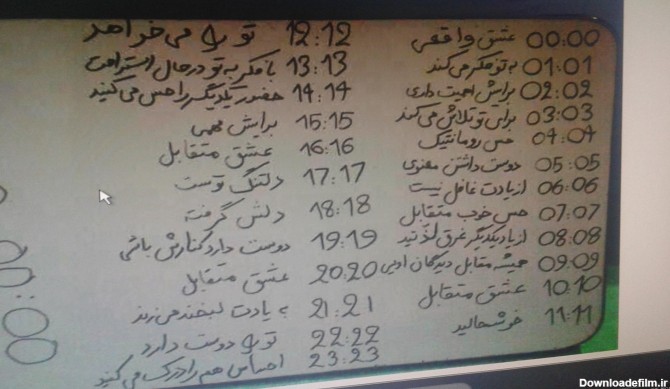 00:00 عشق واقعی
01:01 به تو فکر می‌کند
02:02 برایش اهمیت داری
03:03 برای تو تلاش می‌کند
04:04 حس رومانتیک
05:05 دوست داشتن معنوی
06:06 از یادت غافل نیست
07:07 حس خوب متقابل
08:08 از یاد یکدیگر غرق لذّتید
09:09 همیشه مقابل دیدگان اویی
10:10 عشق متقابل
11:11 خوشحالید
12:12 تو را می‌خواهد
13:13 با فکر به تو در حال استراحت
14:14 حضور یکدیگر را حس می‌کنید
15:15 برایش مهمی
16:16 عشق متقابل
17:17 دلتنگ توست
18:18 دلش گرفته
19:19 دوست دارد کنارش باشی
20:20 عشق متقابل
21:21 به یادت لبخند می‌زند
22:22 تو را دوست دارد
23:23 احساس هم را درک می‌کنید
Downloadefilm.ir